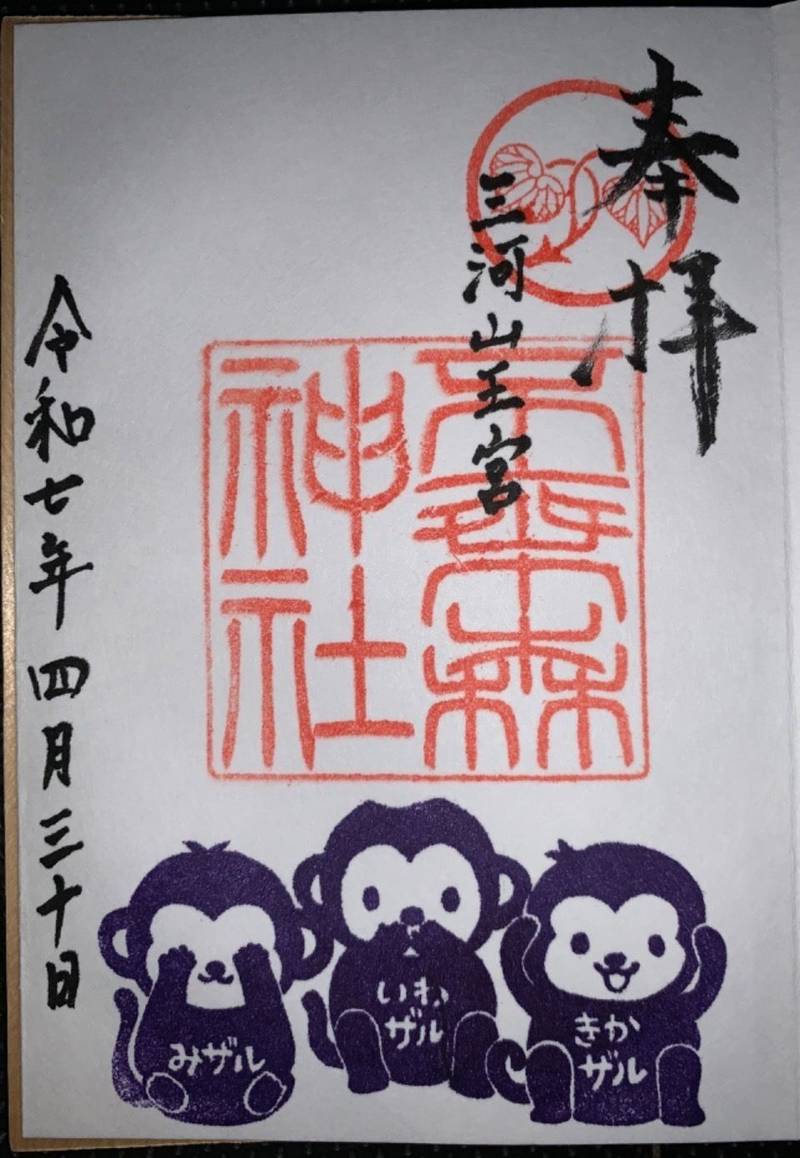 奉拝
三河山王宮
神社
令和七年四月三十日
みザル
いわ
ザル
きか
ザル